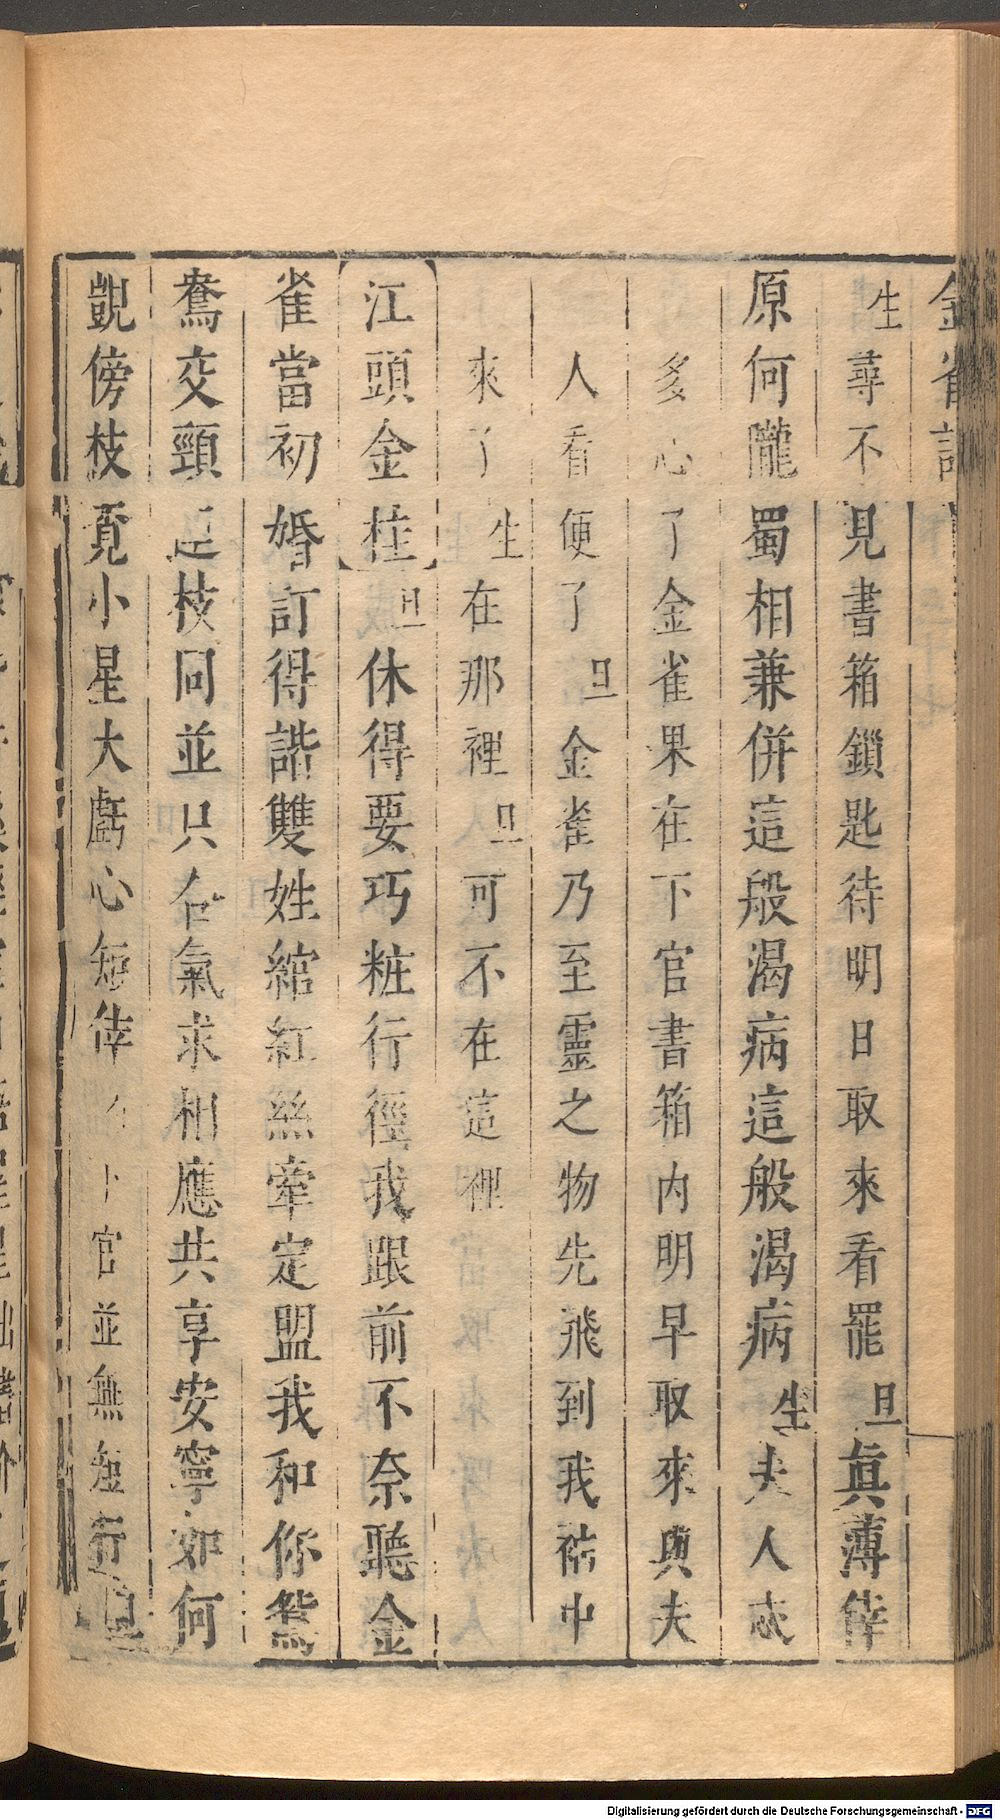 金雀記
生尋不見書箱鎖匙待明日取來看罷旦眞薄倖
原何隴蜀相兼併這般渴病這般渴病生夫人忒
多心了金雀果在下官書箱内明早取來與夫
人看便了旦金雀乃至靈之物先飛到我袖中
來了生在那裡旦可不在這裡
江頭金桂旦休得要巧粧行徑我跟前不奈聽金
雀當初婚訂得諧雙姓綰紅絲牽定盟我和你鴛
鴦交頸連枝同並只合氣求相應共享安寧如何
覬傍枝覔小星大虧心短倖下官並無短行旦
Digitalisierung gefördert durch die Deutsche Forschungsgemeinschaft - DFG